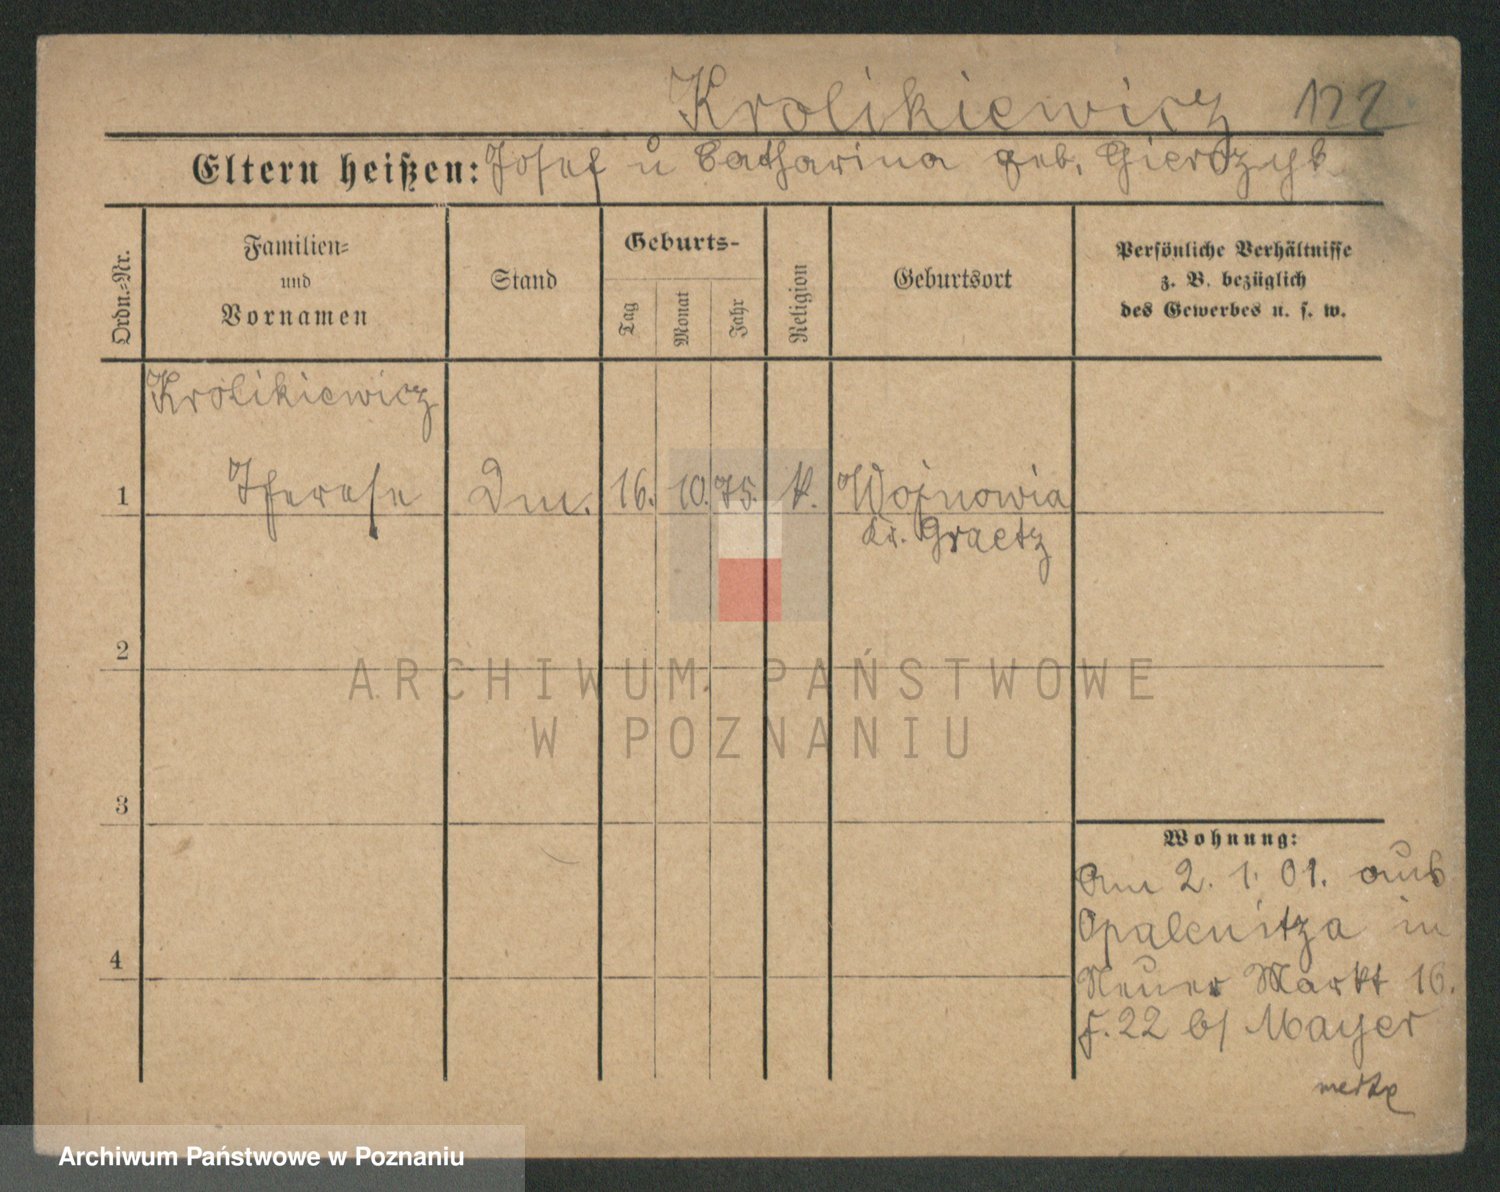 Krolikiewicz 122
Eltern heißen: Josef u Catharina geb. Gierczyk
Ordn.-Nr.
Familien- und Vornamen
Stand
Geburts-
Tag
Monat
Jahr
Religion
Geburtsort
Persönliche Verhältnisse
z. B. bezüglich
des Gewerbes u. s. w.
Krolikiewicz
1 Therese Dm. 16. 10. 75. k. Wojnowia
Kr. Graetz
2
3
4
Wohnung:
Am 2. 1. 01. aus
Opalenitza in
Neuer Markt 16.
F. 22 b/ Mayer
ARCHIWUM PAŃSTWOWE
W POZNANIU
Archiwum Państwowe w Poznaniu